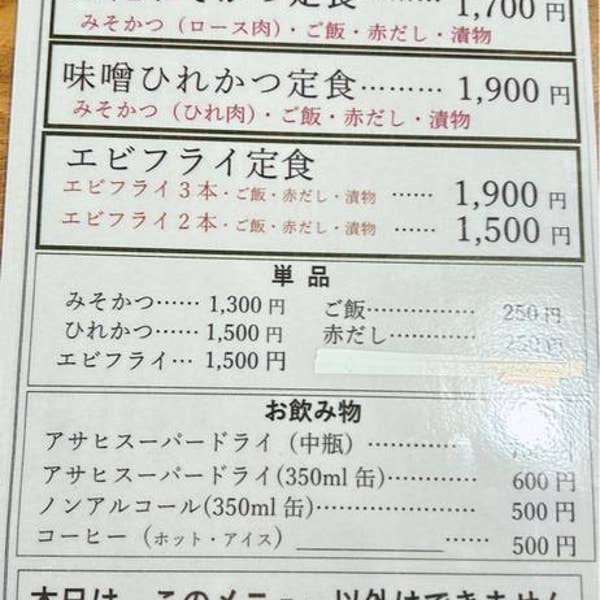 かつ定食……… 1,700 円
みそかつ（ロース肉）・ご飯・赤だし・漬物
味噌ひれかつ定食……… 1,900 円
みそかつ（ひれ肉）・ご飯・赤だし・漬物
エビフライ定食
エビフライ3本・ご飯・赤だし・漬物 …… 1,900 円
エビフライ2本・ご飯・赤だし・漬物 …… 1,500 円
単 品
みそかつ…… 1,300 円
ひれかつ…… 1,500 円
エビフライ… 1,500 円
ご飯…………… 250 円
赤だし………… 円
お飲み物
アサヒスーパードライ（中瓶）………… 円
アサヒスーパードライ(350ml 缶)………… 600 円
ノンアルコール(350ml 缶)………………… 500 円
コーヒー（ホット・アイス）…… 500 円
本日は、このメニュー以外はできません